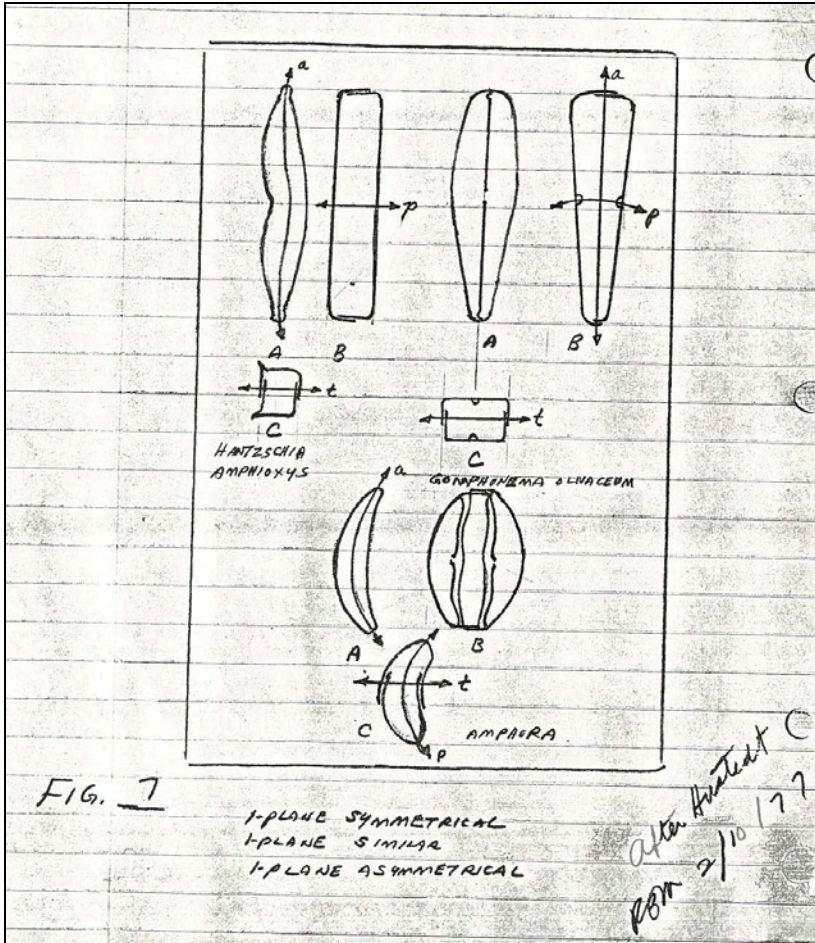 a
a
p
p
A
B
A
B
t
t
C
C
HANTZSCHIA
AMPHIOXYS
GOMPHONEMA OLIVACEUM
a
A
B
t
C
AMPHORA
p
FIG. 7
1-PLANE SYMMETRICAL
1-PLANE SIMILAR
1-PLANE ASYMMETRICAL
After Hustedt
RBM 2/10/77